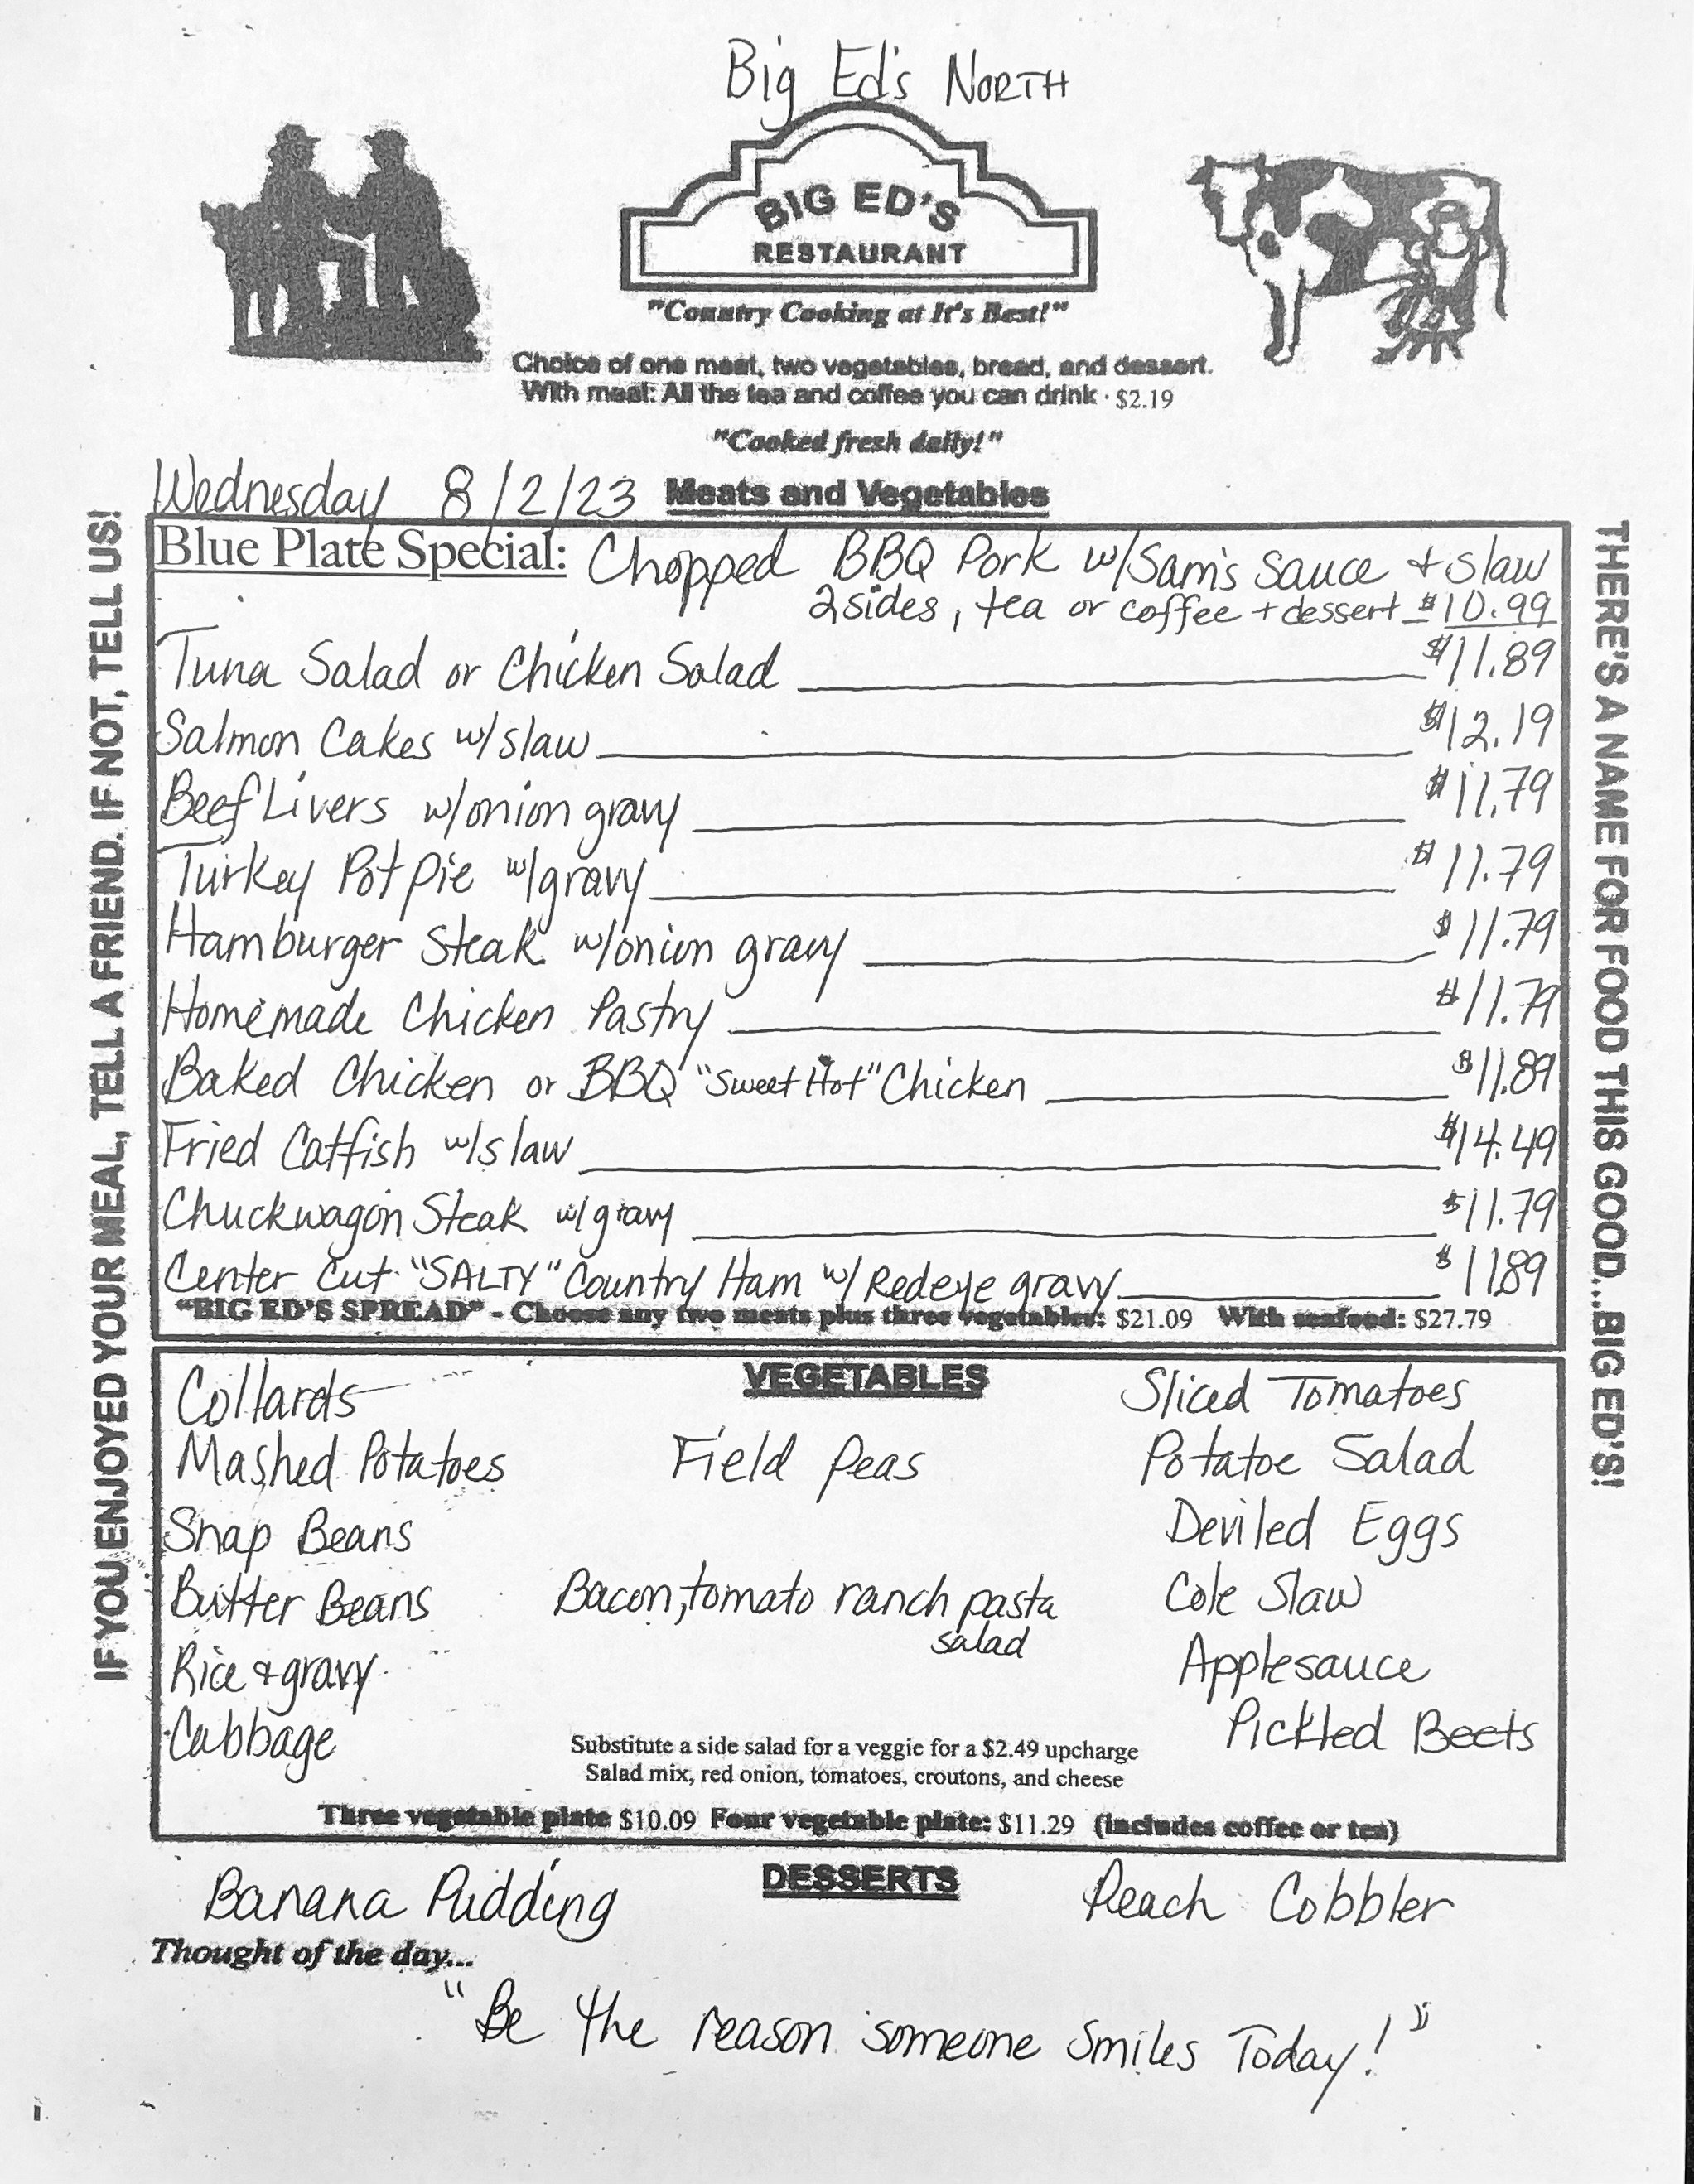 Big Ed's NORTH
BIG ED'S
RESTAURANT
"Country Cooking at It's Best!"
Choice of one meat, two vegetables, bread, and dessert.
With meal: All the tea and coffee you can drink · $2.19
"Cooked fresh daily!"
Wednesday 8/2/23 Meats and Vegetables
Blue Plate Special: Chopped BBQ Pork w/Sam's Sauce + slaw
2 sides, tea or coffee + dessert - $10.99
Tuna Salad or Chicken Salad $11.89
Salmon Cakes w/slaw $12.19
Beef Livers w/onion gravy $11.79
Turkey Pot Pie w/gravy $11.79
Hamburger Steak w/onion gravy $11.79
Homemade Chicken Pastry $11.79
Baked Chicken or BBQ "Sweet Hot" Chicken $11.89
Fried Catfish w/slaw $14.49
Chuckwagon Steak w/gravy $11.79
Center Cut "SALTY" Country Ham w/ Redeye gravy $1189
"BIG ED'S SPREAD" - Choose any two meats plus three vegetables: $21.09 With seafood: $27.79
IF YOU ENJOYED YOUR MEAL, TELL A FRIEND. IF NOT, TELL US!
THERE'S A NAME FOR FOOD THIS GOOD...BIG ED'S!
VEGETABLES
Collards Sliced Tomatoes
Mashed Potatoes Field Peas Potatoe Salad
Snap Beans Deviled Eggs
Butter Beans Bacon, tomato ranch pasta Cole Slaw
salad
Rice + gravy Applesauce
Cabbage Pickled Beets
Substitute a side salad for a veggie for a $2.49 upcharge
Salad mix, red onion, tomatoes, croutons, and cheese
Three vegetable plate $10.09 Four vegetable plate: $11.29 (includes coffee or tea)
DESSERTS
Banana Pudding Peach Cobbler
Thought of the day...
"Be the reason someone smiles Today!"